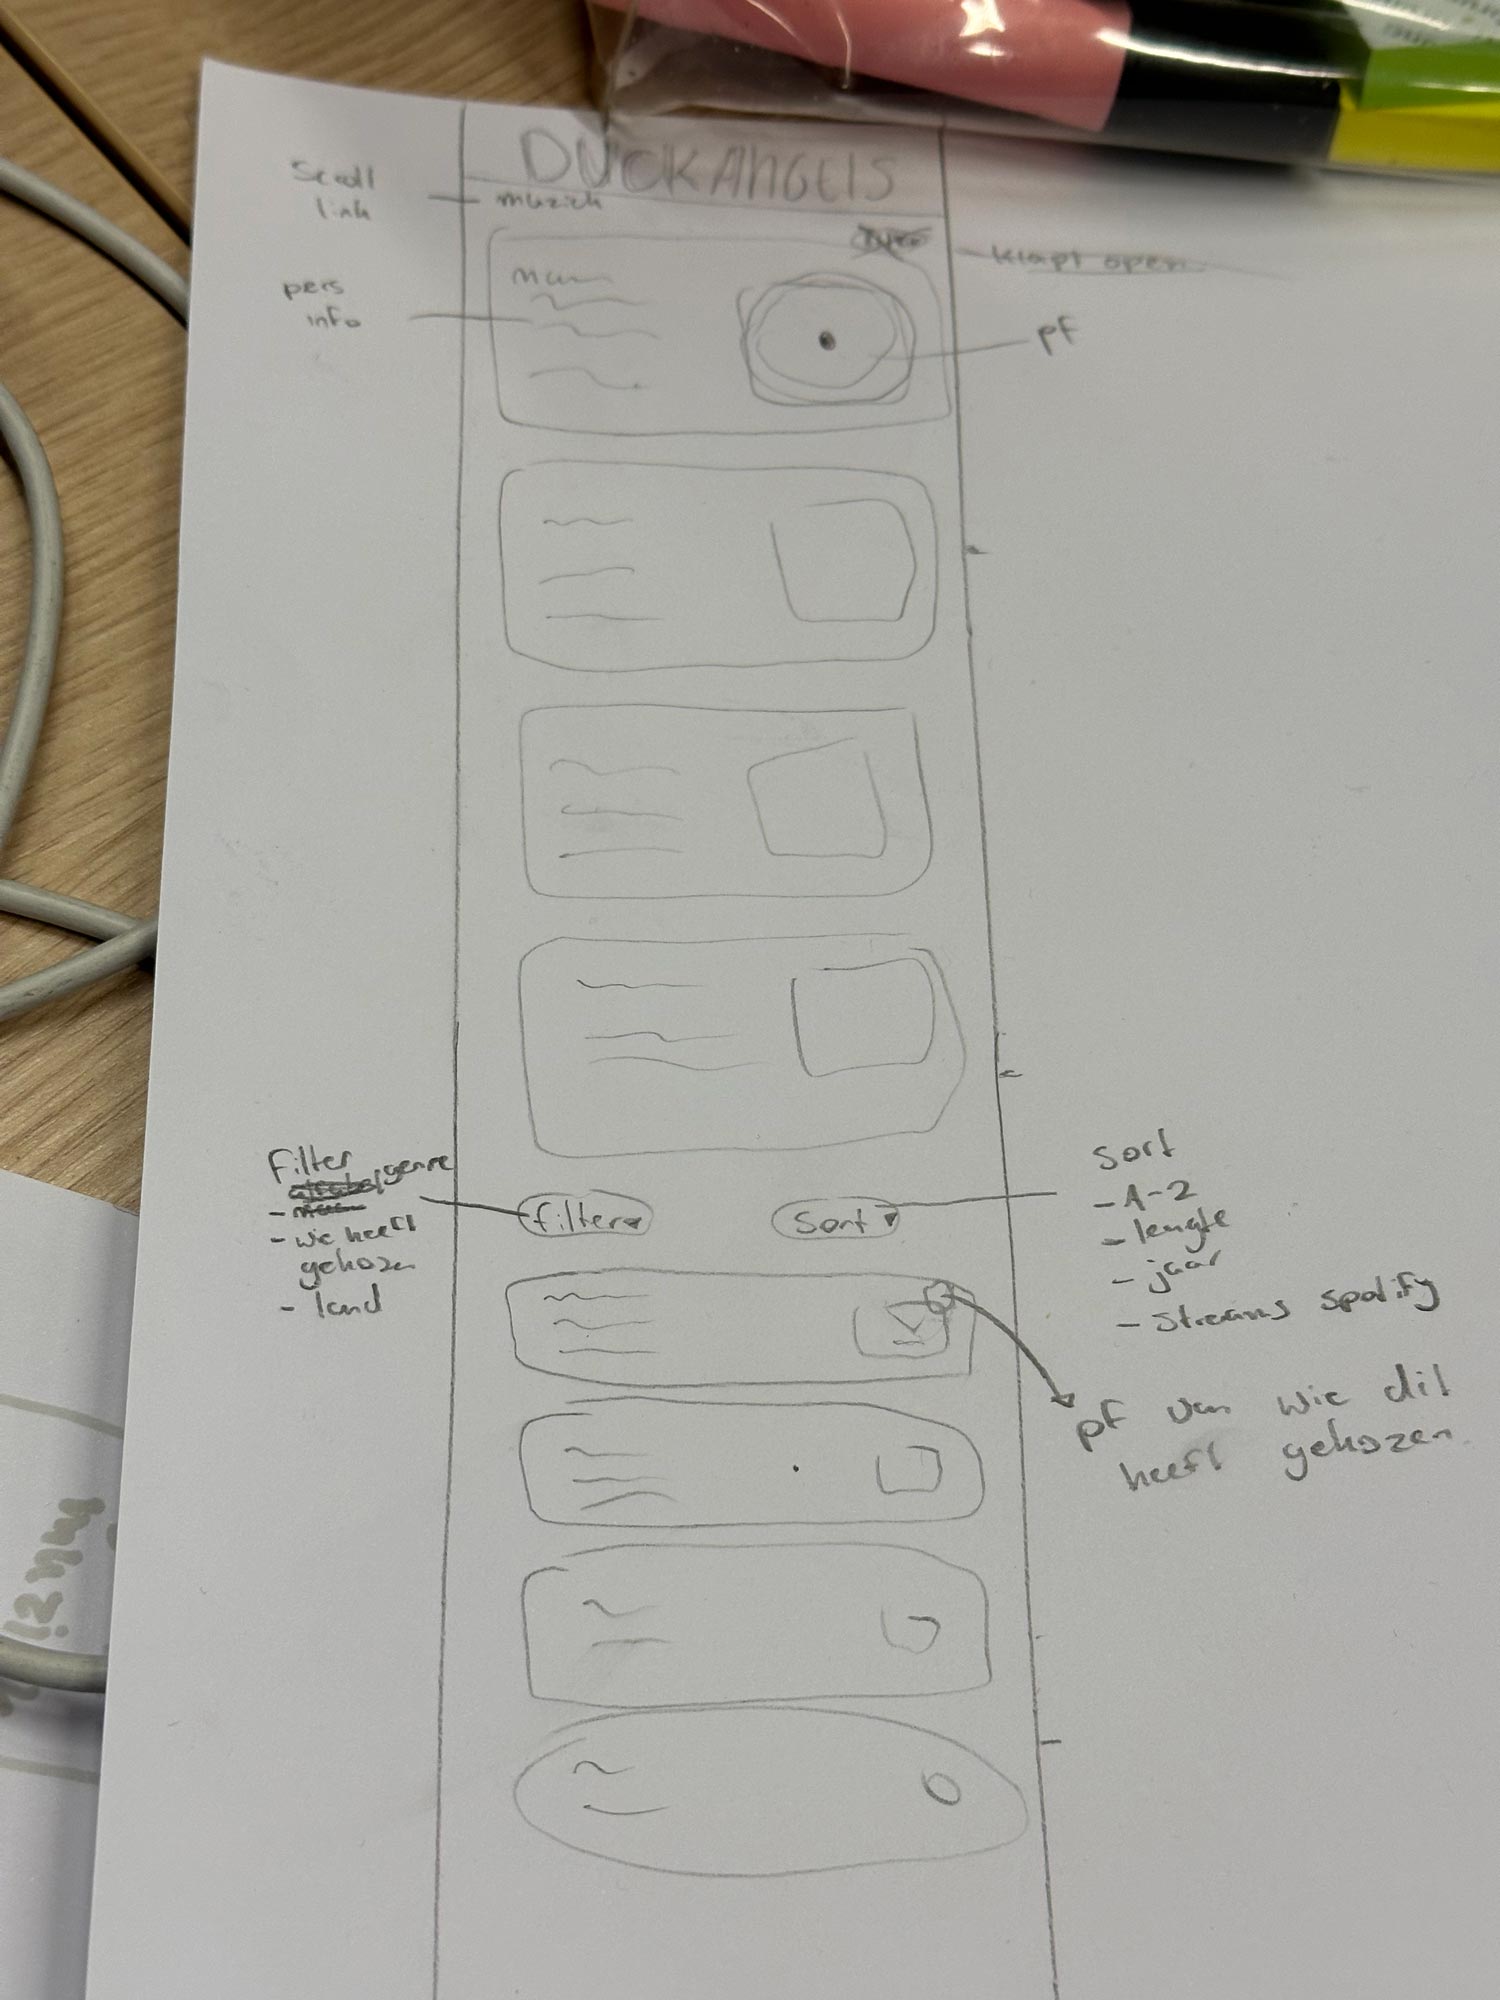 DUCKANGELS
Scroll
link
muziek
klapt open
pers
info
naam
pf
Filter
genre
- wie heeft
gekozen
- land
Filter
Sort
Sort
- A-Z
- lengte
- jaar
- Streams spotify
pf van wie dit
heeft gekozen
muzi